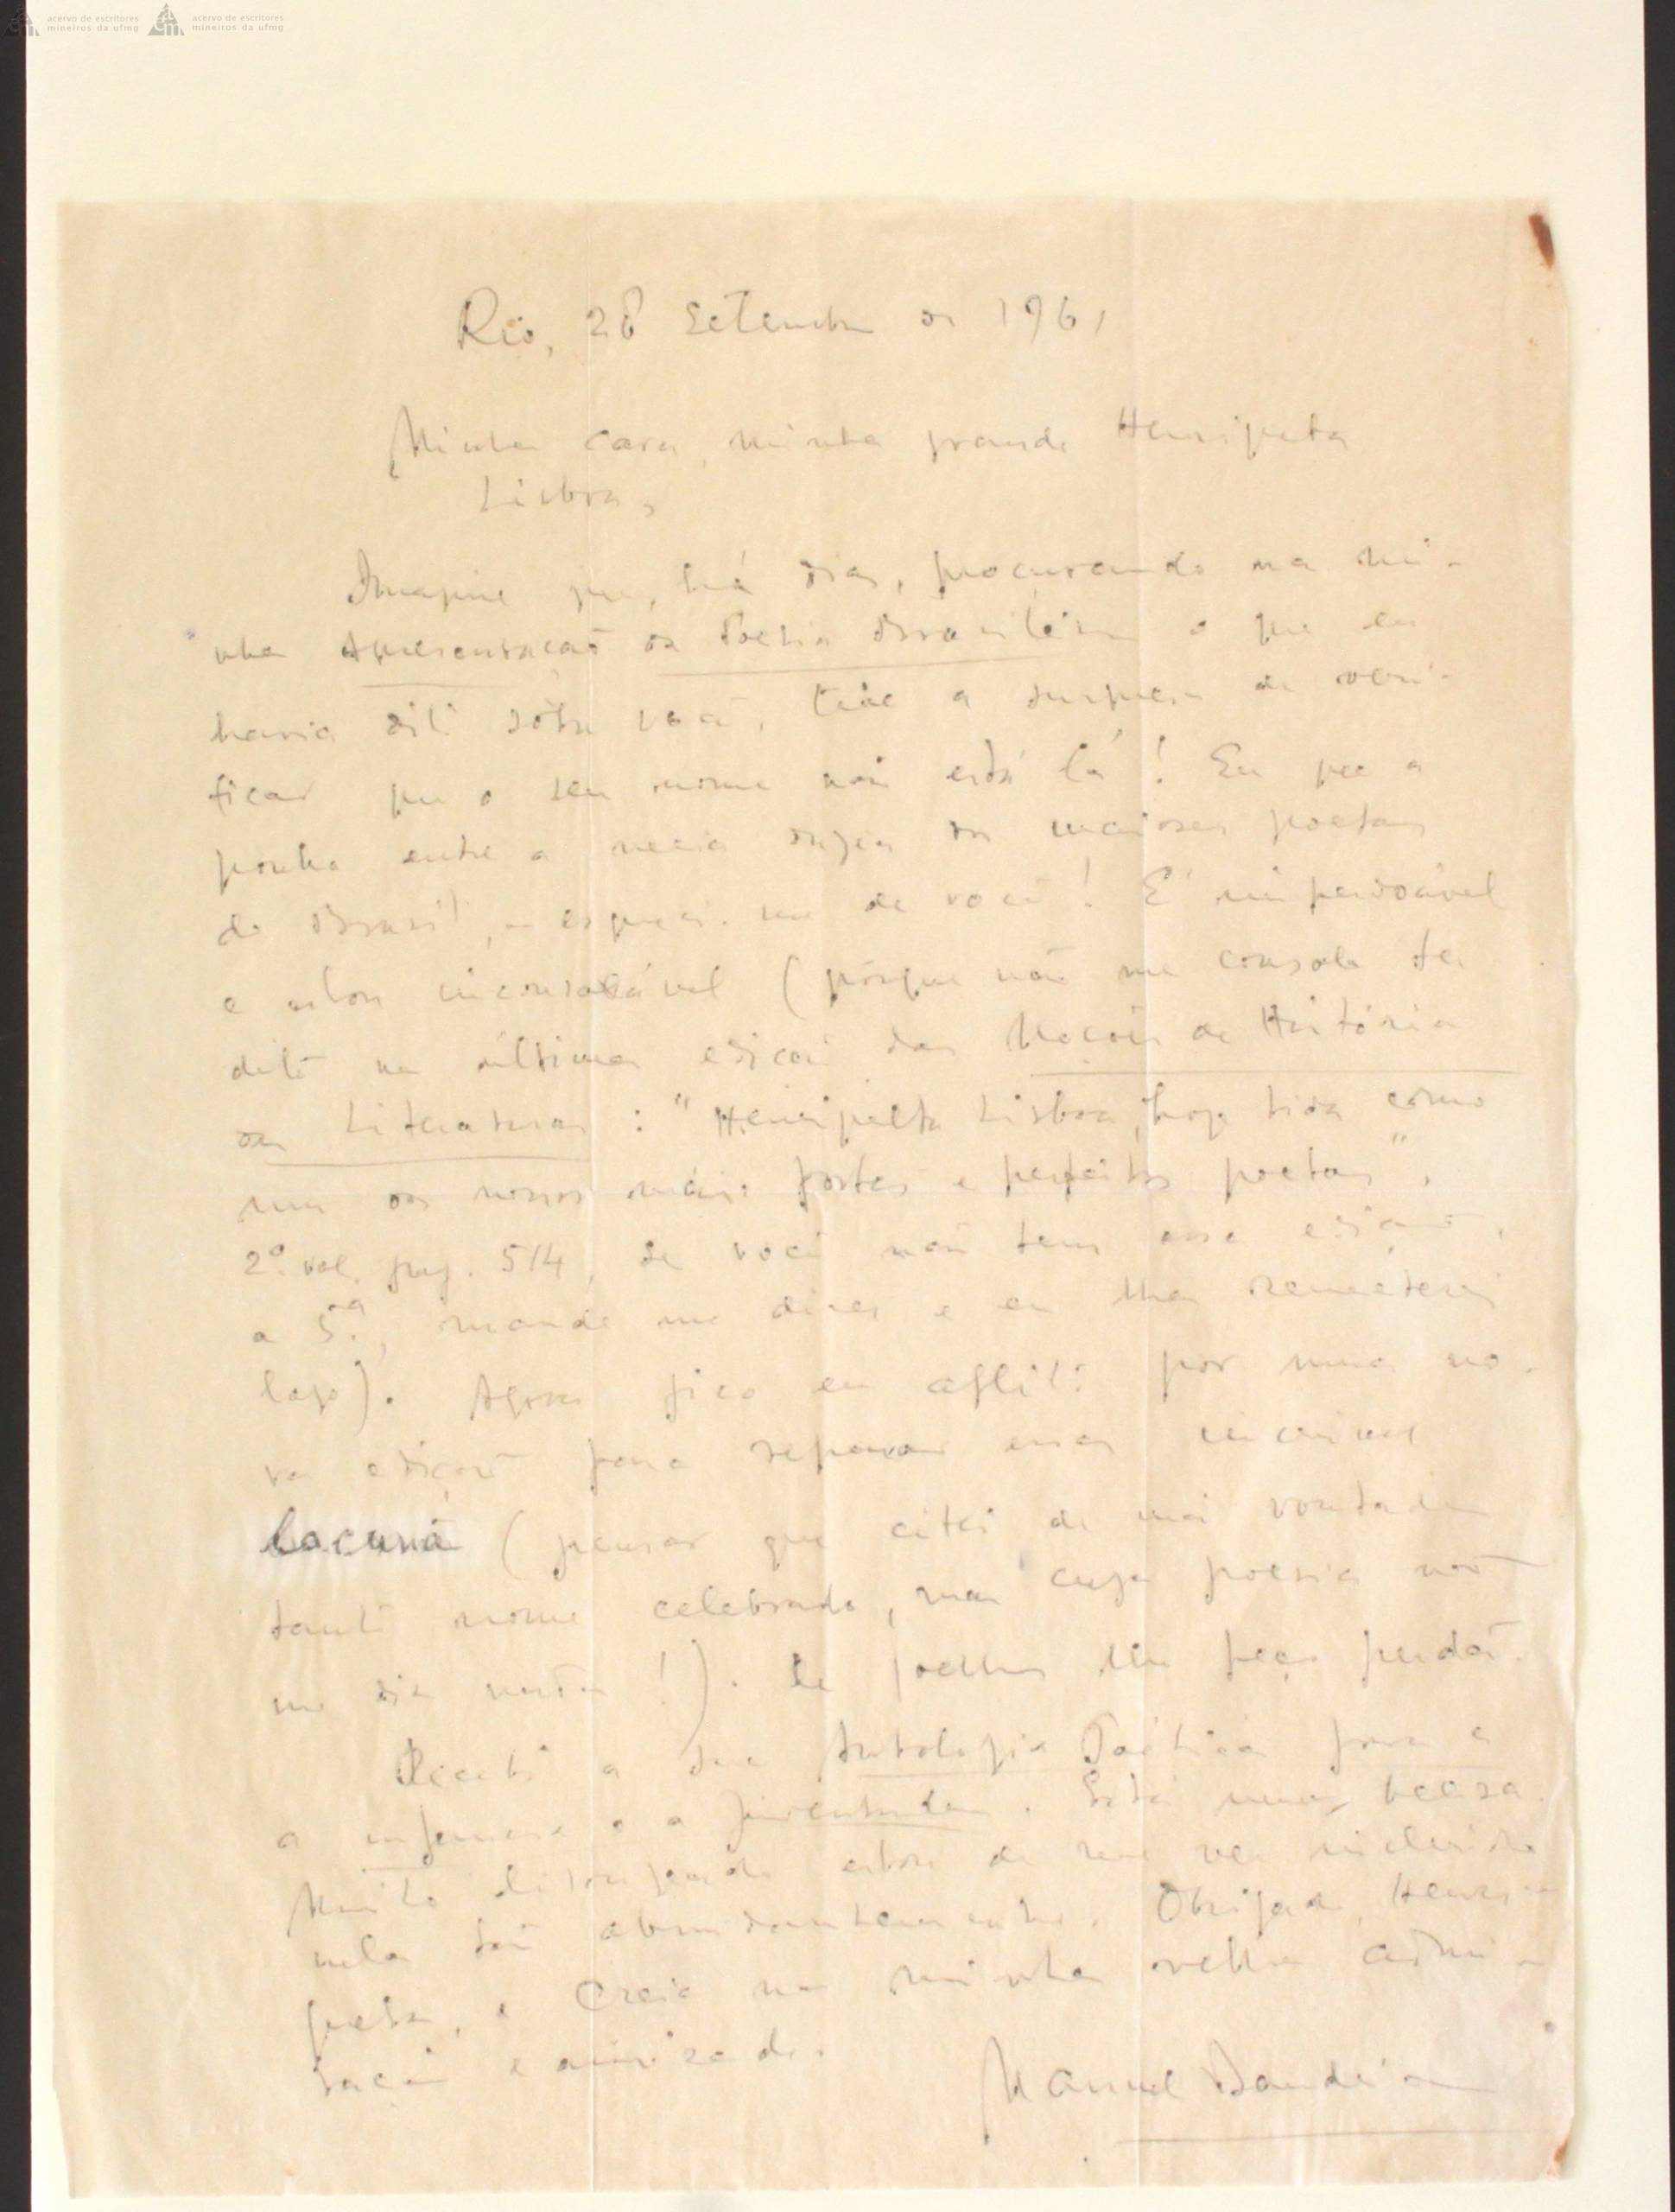 acervo de escritores
mineiros da ufmg
acervo de escritores
mineiros da ufmg
Rio, 28 setembro de 1961
Minha cara, minha grande Henriqueta
Lisboa,
Imagine que, há dias, procurando na mi-
nha Apresentação da Poesia Brasileira o que eu
havia dito sôbre você, tive a surpresa de veri-
ficar que o seu nome não está lá! Eu que a
ponho entre a meia duzia dos maiores poetas
do Brasil, – esqueci-me de você! É imperdoável
e estou inconsolável (porque não me consola ter
dito na última edição das Noções de História
da Literatura: "Henriqueta Lisboa, hoje tida como
um dos nossos mais fortes e perfeitos poetas",
2º. vol. pag. 514, se você não tem essa edição,
a 5ª., mande me dizer e eu lha remeterei
logo). Agora fico eu aflito por uma no-
va edição para reparar essa incrivel
lacuna (pensar que citei de má vontade
tanto nome celebrado, mas cuja poesia não
me diz nada!). De joelhos lhe peço perdão.
Recebi a sua Antologia Poética para
a infancia e a juventude. Está uma beleza.
Muito lisonjeado estou de me ver incluido
nela tão abundantemente. Obrigado, Henri-
queta, e creia na minha velha admi-
ração e amizade.
Manuel Bandeira